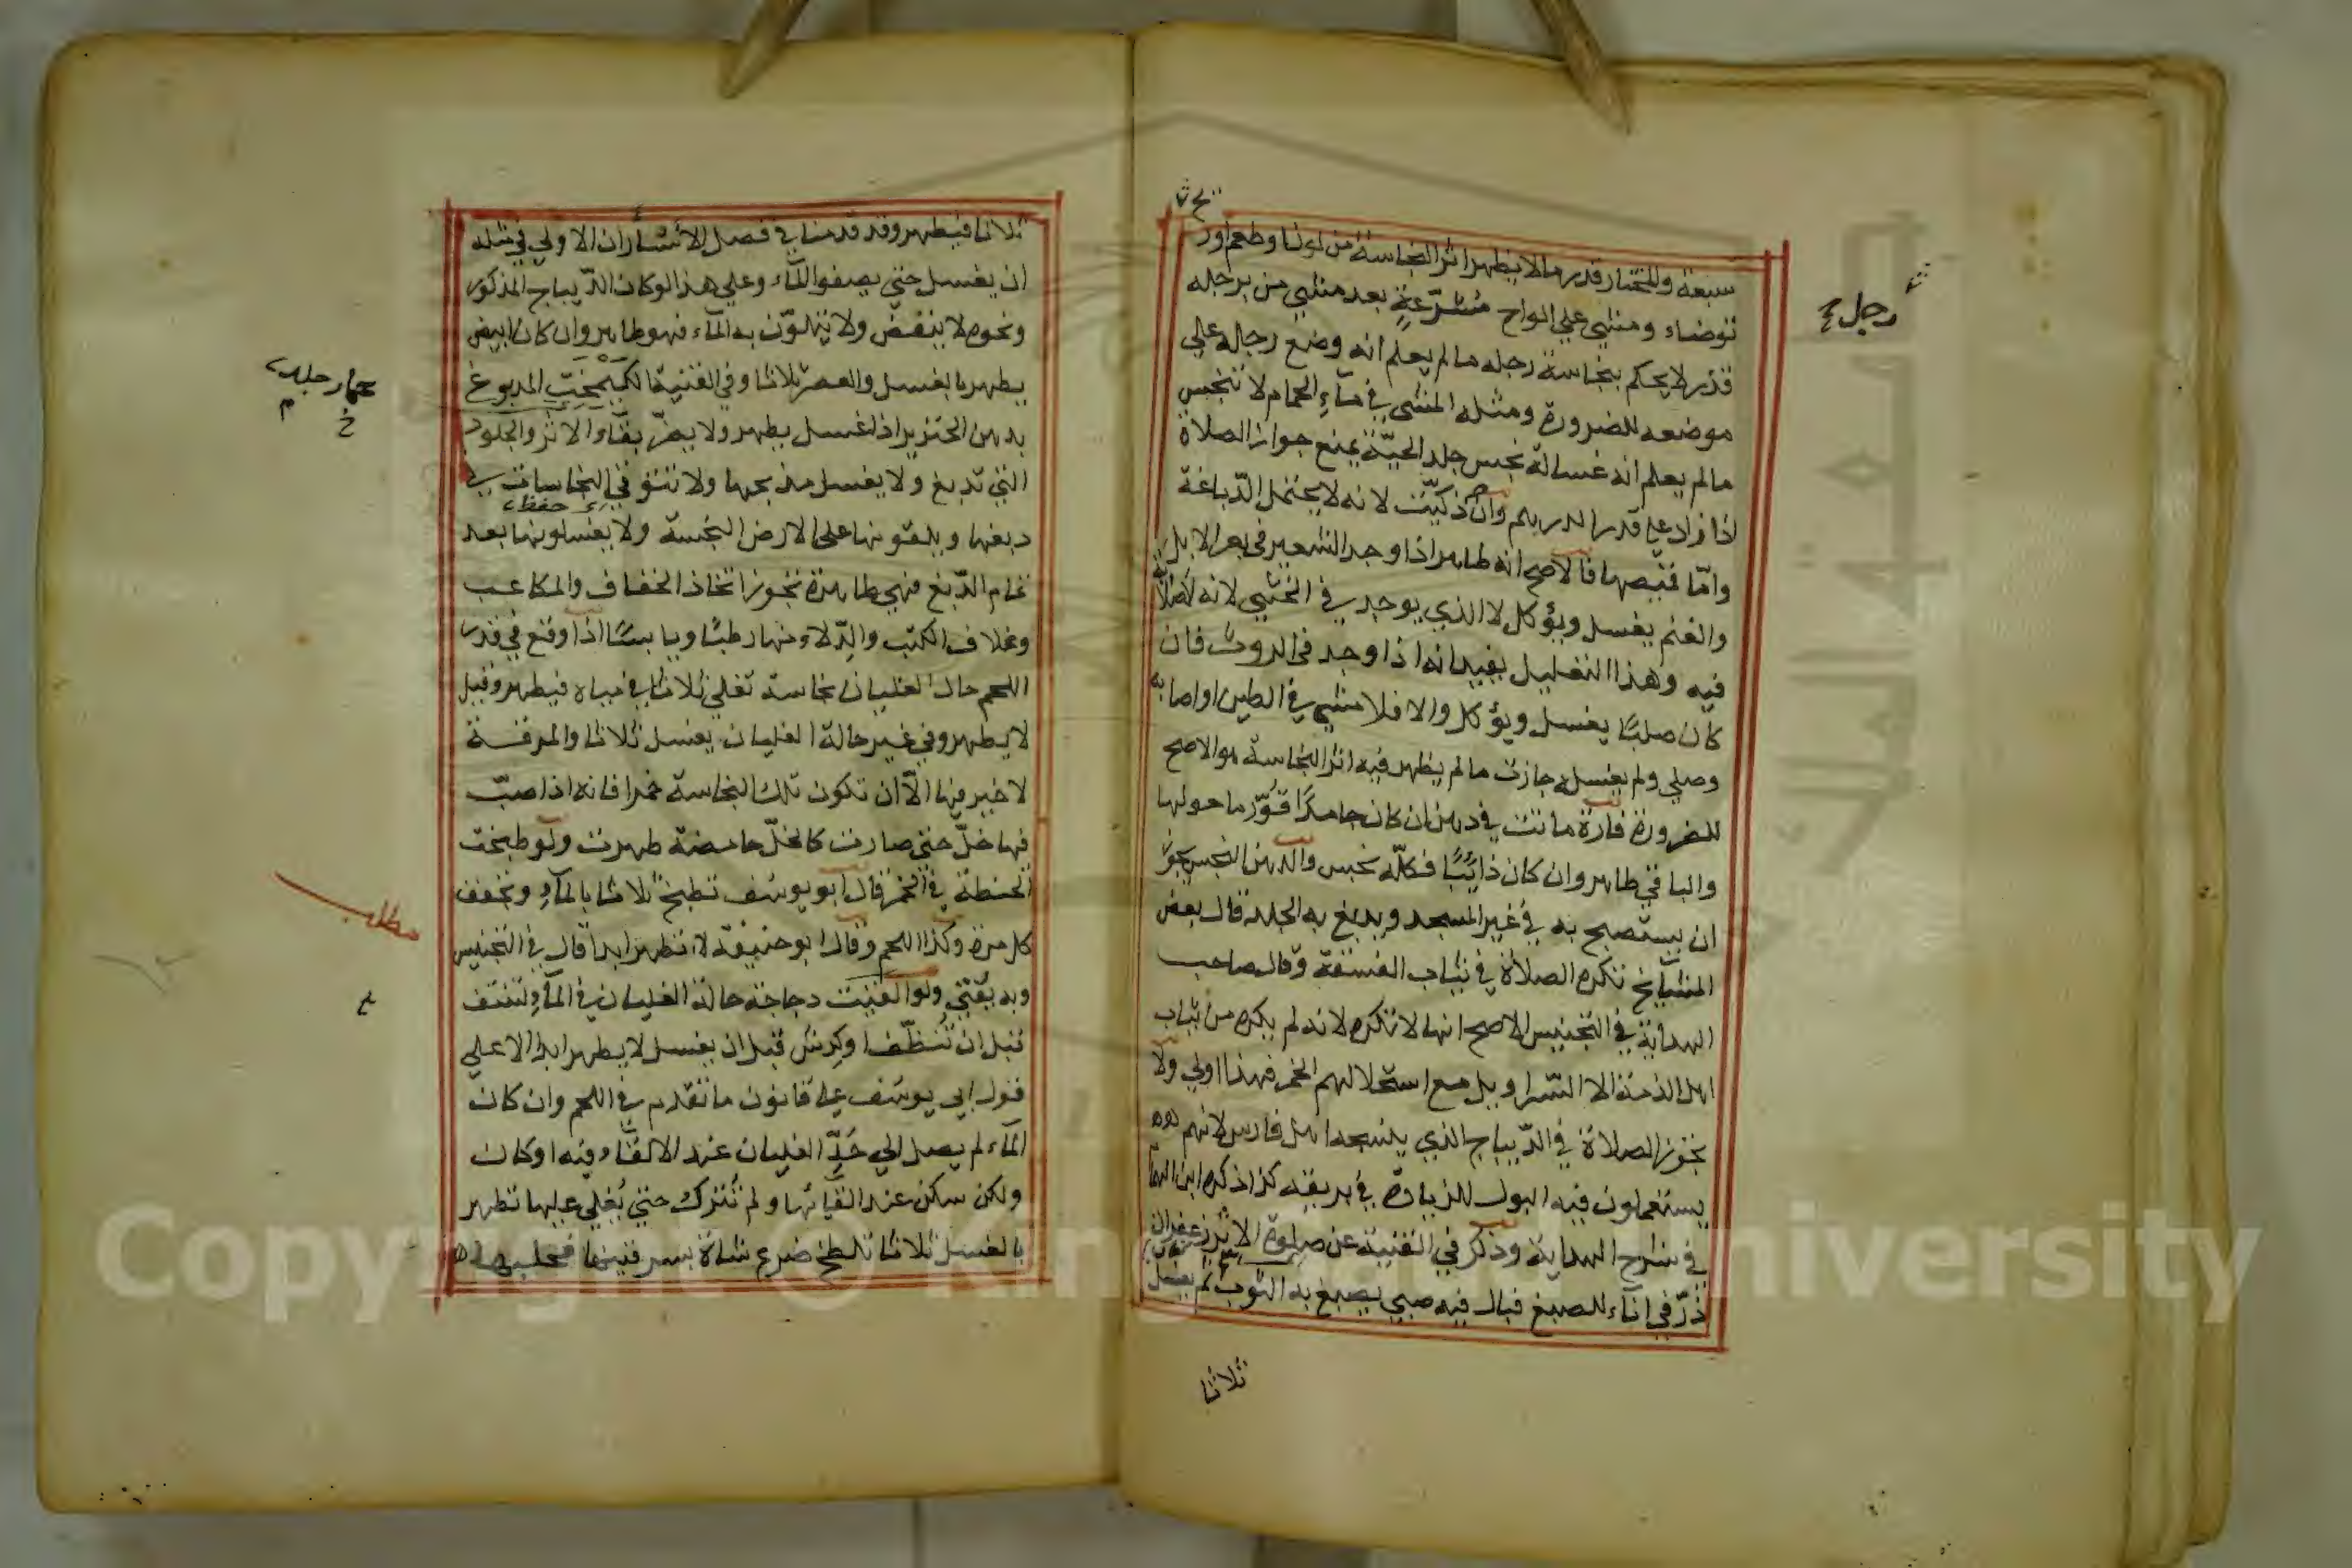 سبعة والمختار قدر ما لا يظهر اثر النجاسة من لونها وطعم او ر
توضاء ومشى على الواح مشرّعةٍ بعد مشي من برجله
قذر لا يحكم بنجاسة رجله ما لم يعلم انه وضع رجله على
موضعه للضرورة ومثله المشى في مآء الحمام لا تنجس
ما لم يعلم انه غسالة نجس جلد الحيّة يمنع جواز الصلاة
اذا زاد على قدر الدرهم وان ذكيّت لانه لا يحتمل الدّباغة
وامّا قميصها فالاصح انه طاهر اذا وجد الشعير في بعر الابل
والغنم يغسل ويؤكل لا الذي يوجد في الخثي لانه لا صلابة
فيه وهذا التعليل يفيد انه اذا وجد في الروث فان
كان صلبًا يغسل ويؤكل والا فلا مشى في الطين او اصابه
وصلى ولم يغسله جازت ما لم يظهر فيه اثر النجاسة هو الاصح
للضرورة فارة ماتت في دهن ان كان جامدًا قُوّر ما حولها
والباقي طاهر وان كان ذائبًا فكلّه نجس والدهن النجس يجوز
ان يستصبح به في غير المسجد ويدبغ به الجلد قال بعض
المشايخ تكره الصلاة في ثياب الفسقة وقال صاحب
الهداية في التجنيس الاصح انها لا تكره لانه لم يكره من ثياب
اهل الذمة الا السّراويل مع استحلالهم الخمر فهذا اولى ولا
تجوز الصلاة في الدّيباج الذي ينسجه اهل فارس لانهم
يستعملون فيه البول للزيادة في بريقه كذا ذكره ابن الهمام
في شرح الهداية وذكر في القنية عن صلوة الاثر زعفران
ذرّ في انآء للصبغ فبال فيه صبي يصبغ به الثوب ثم يغسل
ثلاثا
رجل
ثلاثا فيطهر وقد قدمنا في فصل الاسآر ان الاولى في مثله
ان يغسل حتى يصفو المآء وعلى هذا لو كان الدّيباج المذكور
ونحوه لا ينفض ولا يتلوّن به المآء فهو طاهر وان كان ابيض
يطهر بالغسل والعصر ثلاثا وفي القنية الكيمخت المدبوغ
بدهن الخنزير اذا غسل يطهر ولا يضرّ بقآء الاثر والجلود
التي تدبغ ولا يغسل مذبحها ولا تتوقى النجاسات في
دبغها ويلقونها على الارض النجسة ولا يغسلونها بعد
تمام الدّبغ فهي طاهرة تجوز اتخاذ الخفاف والمكاعب
وغلاف الكتب والدّلاء منها رطبًا ويابسًا اذا وقع في قدر
اللحم حال الغليان نجاسة تغلى ثلاثا في مياه فيطهر وقيل
لا يطهر وفي غير حالة الغليان يغسل ثلاثا والمرقة
لا خير فيها الّا ان تكون تلك النجاسة خمرا فانه اذا صبّ
فيها خلّ حتى صارت كالخلّ حامضة طهرت ولو طبخت
الحنطة في الخمر قال ابو يوسف تطبخ ثلاثا بالمآء وتجفف
كل مرة وكذا اللحم وقال ابو حنيفة لا تطهر ابدا قال في التجنيس
وبه يفتى ولو القيت دجاجة حالة الغليان في المآء لتنتف
قبل ان تُنظّف او كرش قبل ان يغسل لا يطهر ابدا الا على
قول ابي يوسف على قانون ما تقدم في اللحم وان كان
المآء لم يصل الى حَدِّ الغليان عند الالقآء فيه او كان
ولكن سكن عند القآئها ولم تُترك حتى يُغلى عليها تطهر
بالغسل ثلاثا تلطخ ضرع شاة بسرقينها فحلبها
مطلب